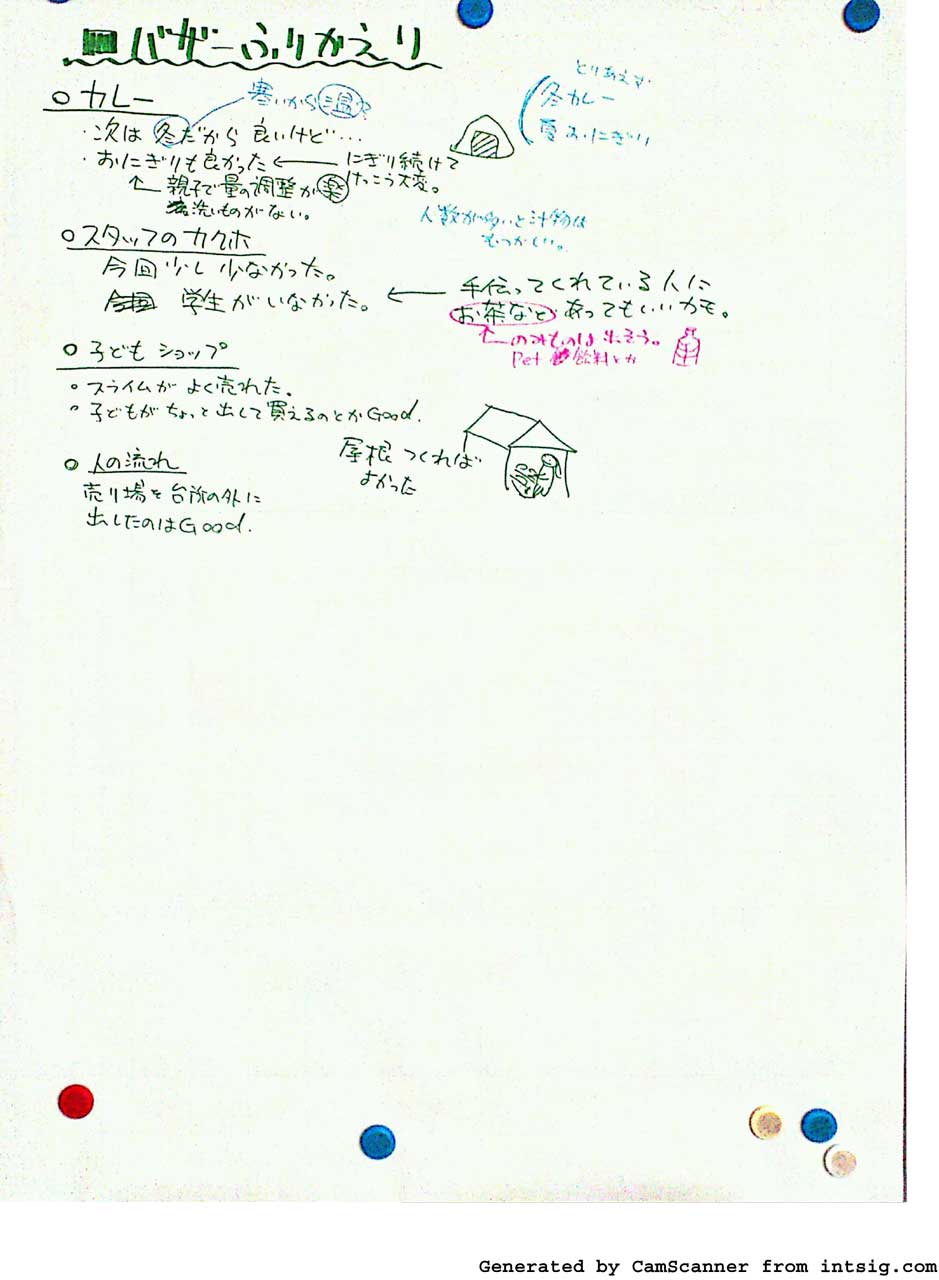 バザーふりかえり
○ カレー
寒いから温
・次は 冬だから 良いけど…
・おにぎりも良かった ← にぎり続けて
けっこう大変。
親子で量の調整が楽
洗いものがない。
とりあえず
冬カレー
夏おにぎり
人数が多いと汁物は
むつかしい。
○スタッフのカクホ
今回少し少なかった。
学生がいなかった。 ← 手伝ってくれている人に
お茶など あってもいいカモ。
のみものは 出そう。
Pet 飲料とか
○ 子ども ショップ
○ スライムが よく売れた。
○ 子どもがちょっと出して買えるのとかGood.
○ 人の流れ
売り場を台所の外に
出したのはGood.
屋根 つくれば
よかった
Generated by CamScanner from intsig.com